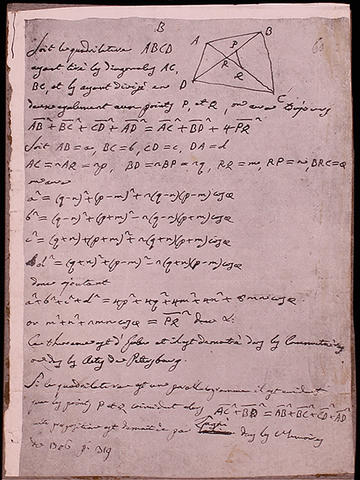 B
A B
P
R Q
D C
60
Soit le quadrilatère ABCD
ayant tiré les diagonales AC,
BC, et les ayant divisé en
deux également aux points P, et Q, on aura
AB² + BC² + CD² + AD² = AC² + BD² + 4PQ²
Soit AB = a, BC = b, CD = c, DA = d
AC = 2AP = 2p, BD = 2BQ = 2q, RQ = m, RP = n, BRC = φ
on aura
a² = (q-n)² + (p-m)² + 2(q-n)(p-m)cosφ
b² = (q-n)² + (p+m)² - 2(q-n)(p+m)cosφ
c² = (q+n)² + (p+m)² + 2(q+n)(p+m)cosφ
d² = (q+n)² + (p-m)² - 2(q+n)(p-m)cosφ
donc ajoutant
a² + b² + c² + d² = 4p² + 4q² + 4m² + 4n² + 8mn cosφ
or m² + n² + 2mn cosφ = PQ² donc &:
Ce théoreme est d'Euler et il est demontré dans les Commentaires
ou dans les Actes de Petersbourg.
Si le quadrilatere est un parallelogramme il est evident
que les points P et Q coincident alors AC² + BD² = AB² + BC² + CD² + AD²
cette proposition est demontrée par Lagni dans les Memoires
de 1706 p. 319